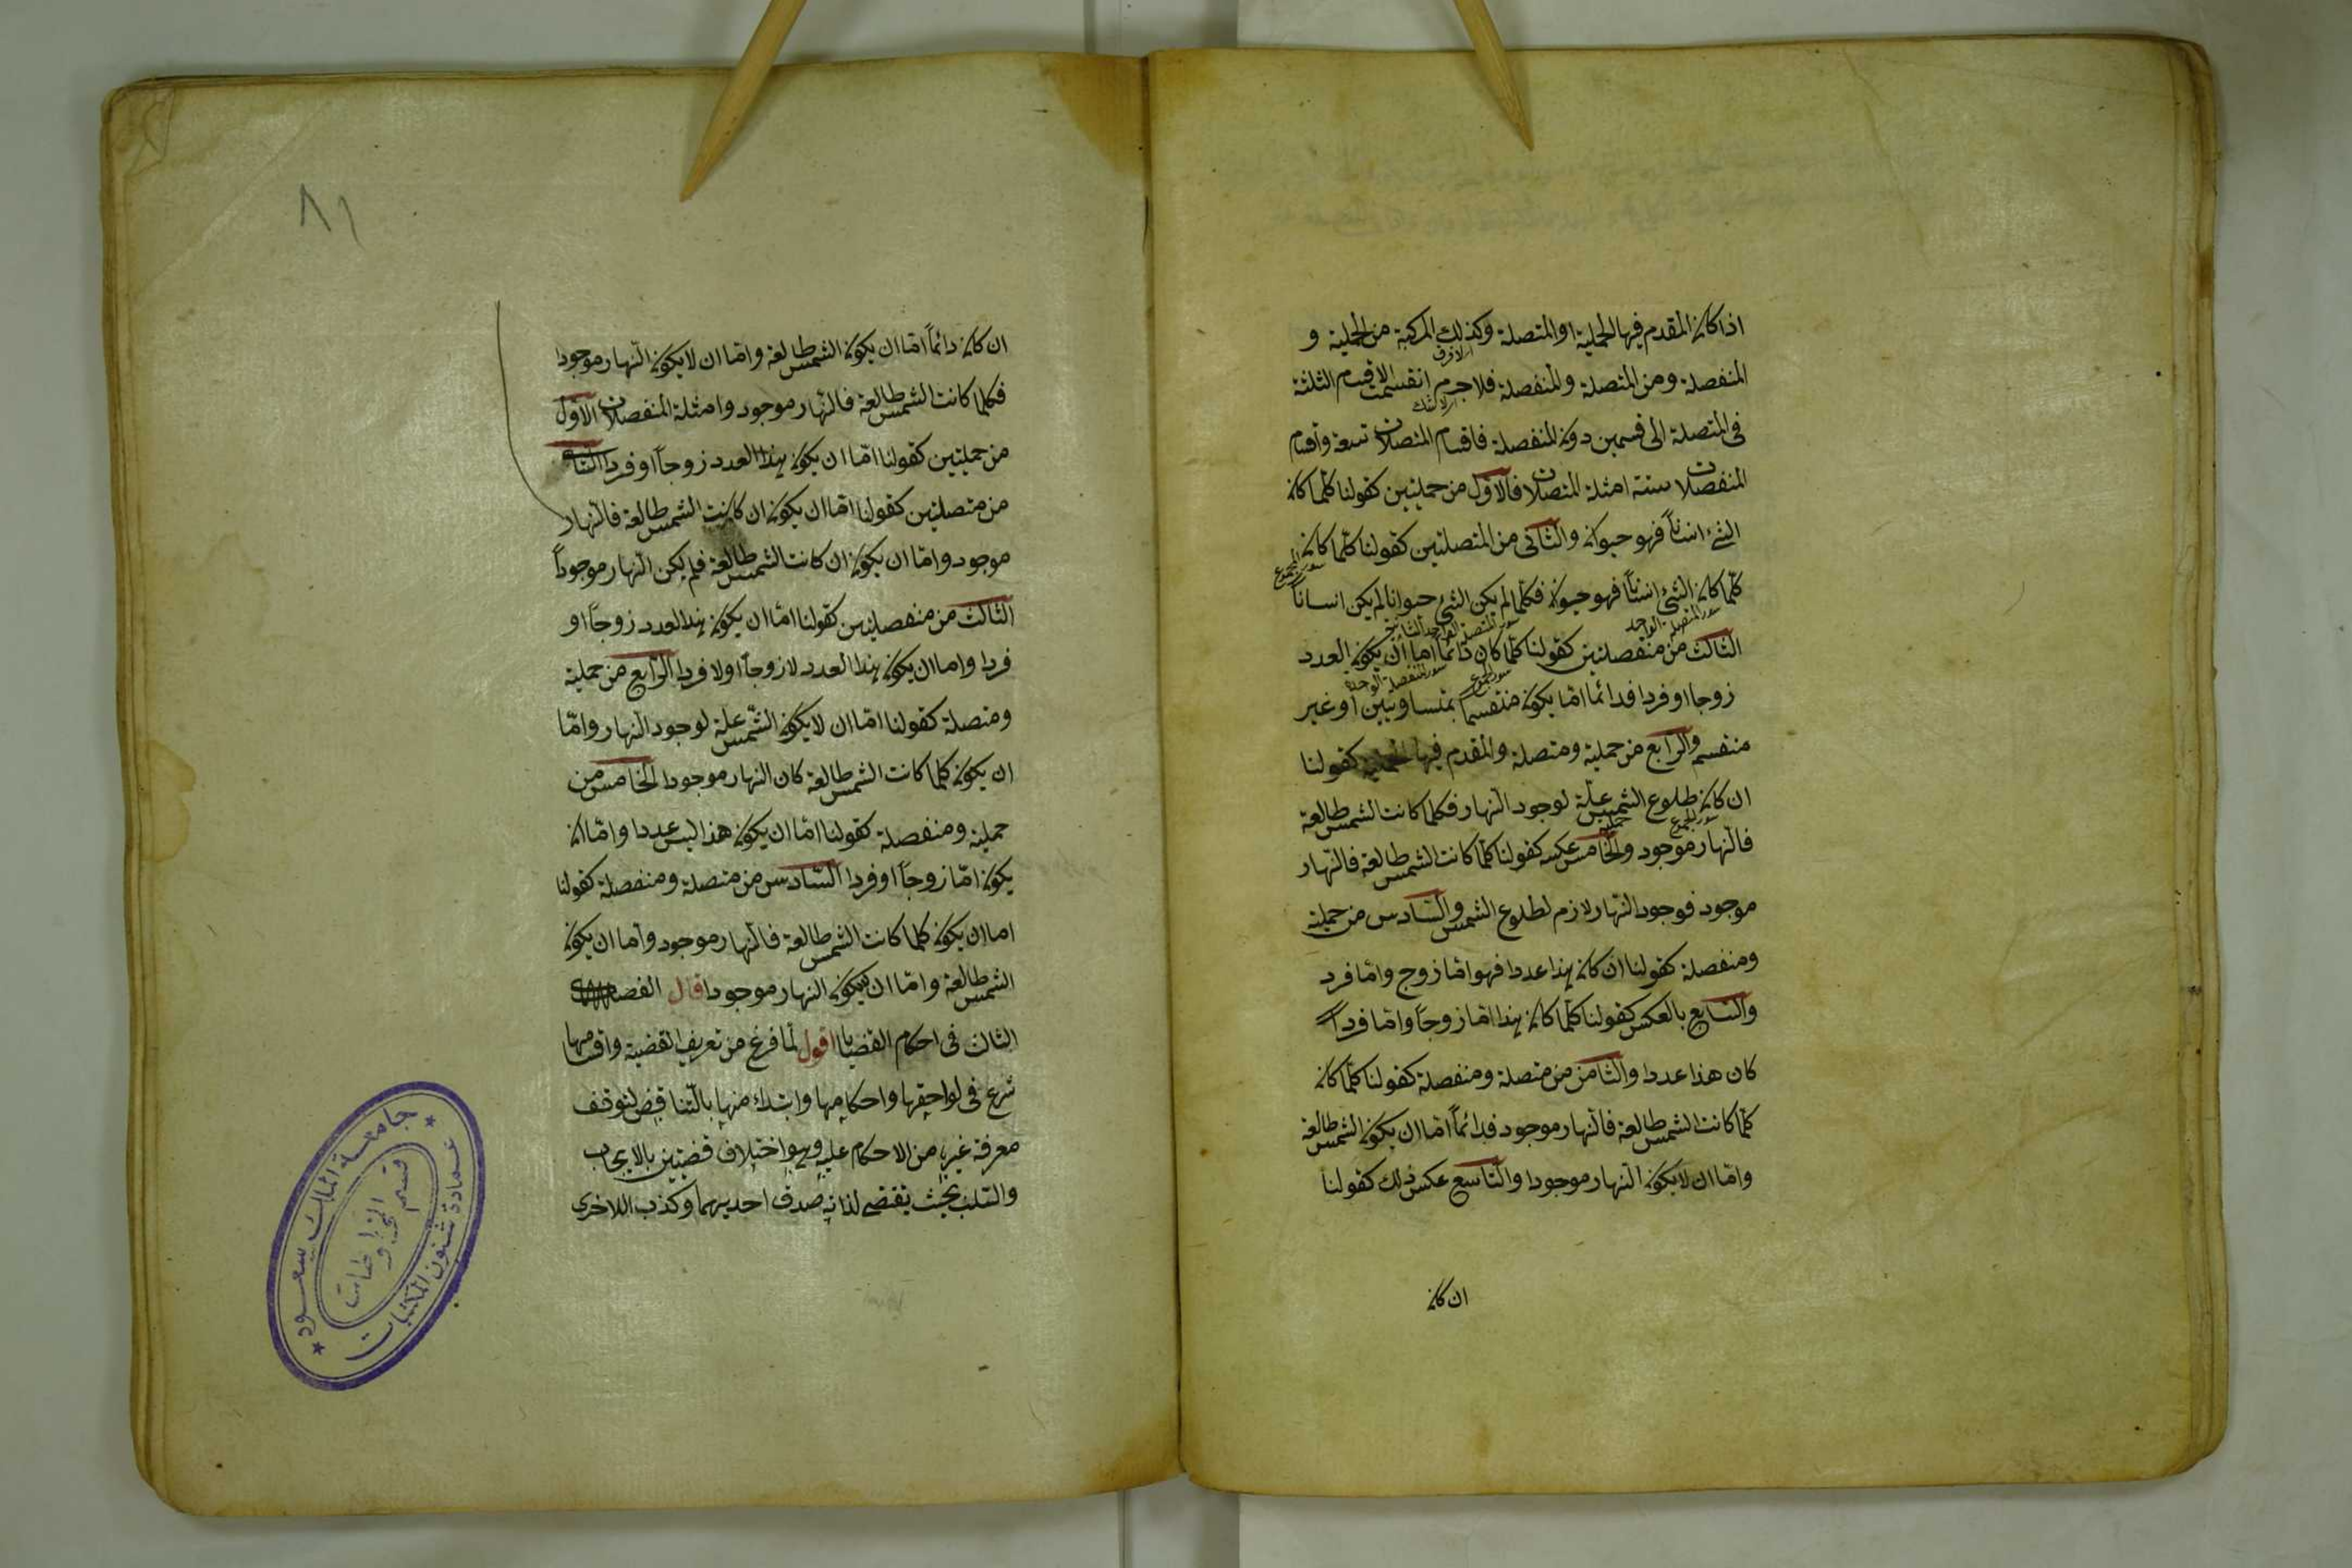 اذا كان المقدم فيها الحملية او المتصلة وكذلك المركبة من الحملية و
المنفصلة ومن المتصلة والمنفصلة فلاجرم انقسمت الاقسام الثلثة
فى المتصلة الى قسمين دون المنفصلة فاقسام المتصلات تسعة واقسام
المنفصلات ستة امثلة المتصلات فالاول من حمليتين كقولنا كلما كان
الشئ انسانا فهو حيوان والثانى من المتصلتين كقولنا كلما كان
كلما كان الشئ انسانا فهو حيوان فكلما لم يكن الشئ حيوانا لم يكن انسانا
الثالث من منفصلتين كقولنا كلما كان دائما اما ان يكون العدد
زوجا او فردا فدائما اما يكون منقسما بمتساويين او غير
منقسم والرابع من حملية ومتصلة والمقدم فيها الحملية كقولنا
ان كان طلوع الشمس علة لوجود النهار فكلما كانت الشمس طالعة
فالنهار موجود والخامس عكسه كقولنا كلما كانت الشمس طالعة فالنهار
موجود فوجود النهار لازم لطلوع الشمس والسادس من حملية
ومنفصلة كقولنا ان كان هذا عددا فهو اما زوج واما فرد
والسابع بالعكس كقولنا كلما كان هذا اما زوجا واما فردا
كان هذا عددا والثامن من متصلة ومنفصلة كقولنا كلما كان
كلما كانت الشمس طالعة فالنهار موجود فدائما اما ان يكون الشمس طالعة
واما ان لا يكون النهار موجودا والتاسع عكس ذلك كقولنا
ان كان
٨١
ان كان دائما اما ان يكون الشمس طالعة واما ان لا يكون النهار موجودا
فكلما كانت الشمس طالعة فالنهار موجود وامثلة المنفصلات الاول
من حمليتين كقولنا اما ان يكون هذا العدد زوجا او فردا الثانى
من متصلتين كقولنا اما ان يكون ان كانت الشمس طالعة فالنهار
موجود واما ان يكون ان كانت الشمس طالعة فلم يكن النهار موجودا
الثالث من منفصلتين كقولنا اما ان يكون هذا العدد زوجا او
فردا واما ان يكون هذا العدد لا زوجا او لا فردا الرابع من حملية
ومتصلة كقولنا اما ان لا يكون الشمس علة لوجود النهار واما
ان يكون كلما كانت الشمس طالعة كان النهار موجودا الخامس من
حملية ومنفصلة كقولنا اما ان يكون هذا ليس عددا واما ان
يكون اما زوجا او فردا السادس من متصلة ومنفصلة كقولنا
اما ان يكون كلما كانت الشمس طالعة فالنهار موجود واما ان يكون
الشمس طالعة واما ان يكون النهار موجودا قال الفصل
الثالث فى احكام القضايا اقول لما فرغ من تعريف القضية واقسامها
شرع فى لواحقها واحكامها وابتدأ منها بالتناقض لتوقف
معرفة غيره من الاحكام عليه وهو اختلاف قضيتين بالايجاب
والسلب بحيث يقتضى لذاته صدق احديهما وكذب الاخرى
جامعة الملك سعود
عمادة شئون المكتبات
قسم المخطوطات